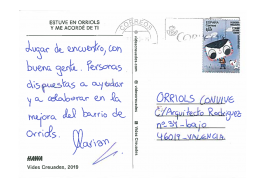 ESTUVE EN ORRIOLS
Y ME ACORDÉ DE TI
Lugar de encuentro, con
buena gente. Personas
dispuestas a ayudar
y a colaborar en la
mejora del barrio de
Orriols.
Marian
Vides Creuades, 2019
Vides Creuades
CORREOS
ESPAÑA
ORRIOLS CONVIVE
C/Arquitecto Rodríguez
nº 39-bajo
46019-VALENCIA